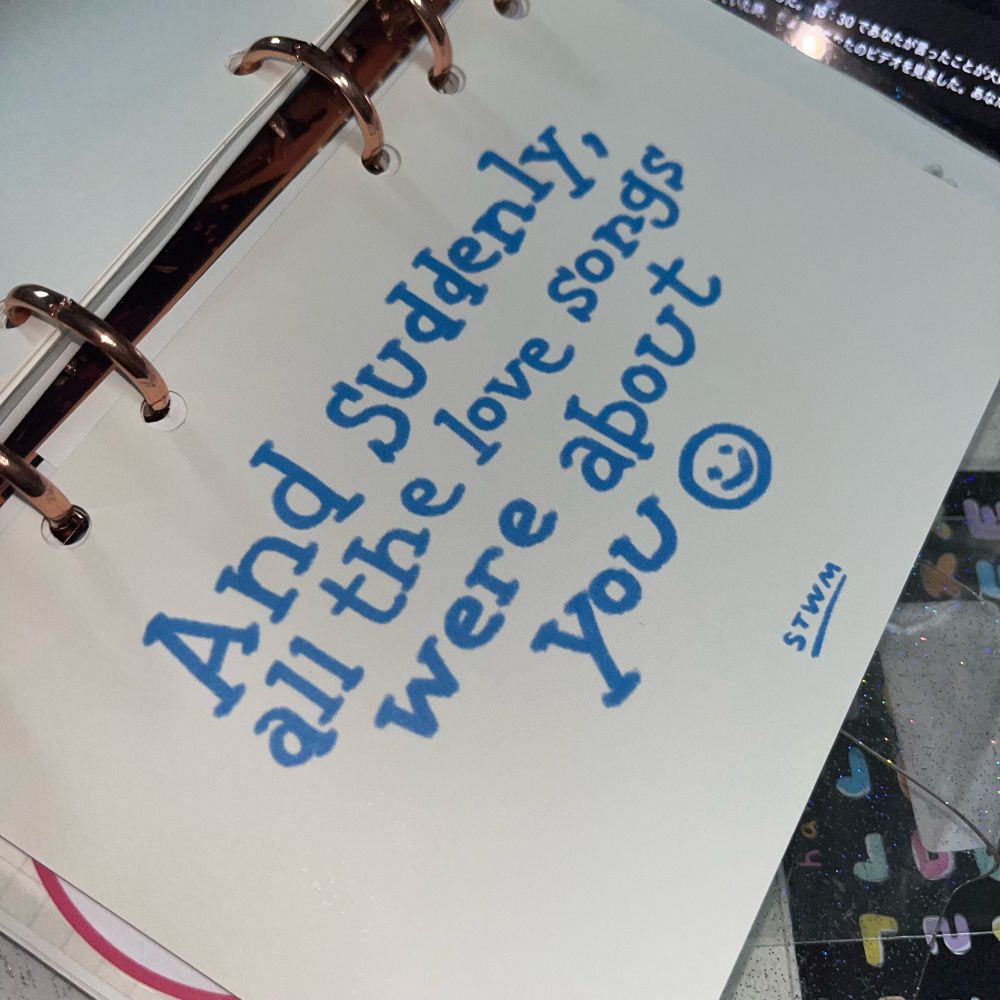 And Suddenly,
all the love songs
were about
you
STWM
16:30 であなたが言ったことが大
のビデオを見ました。あな